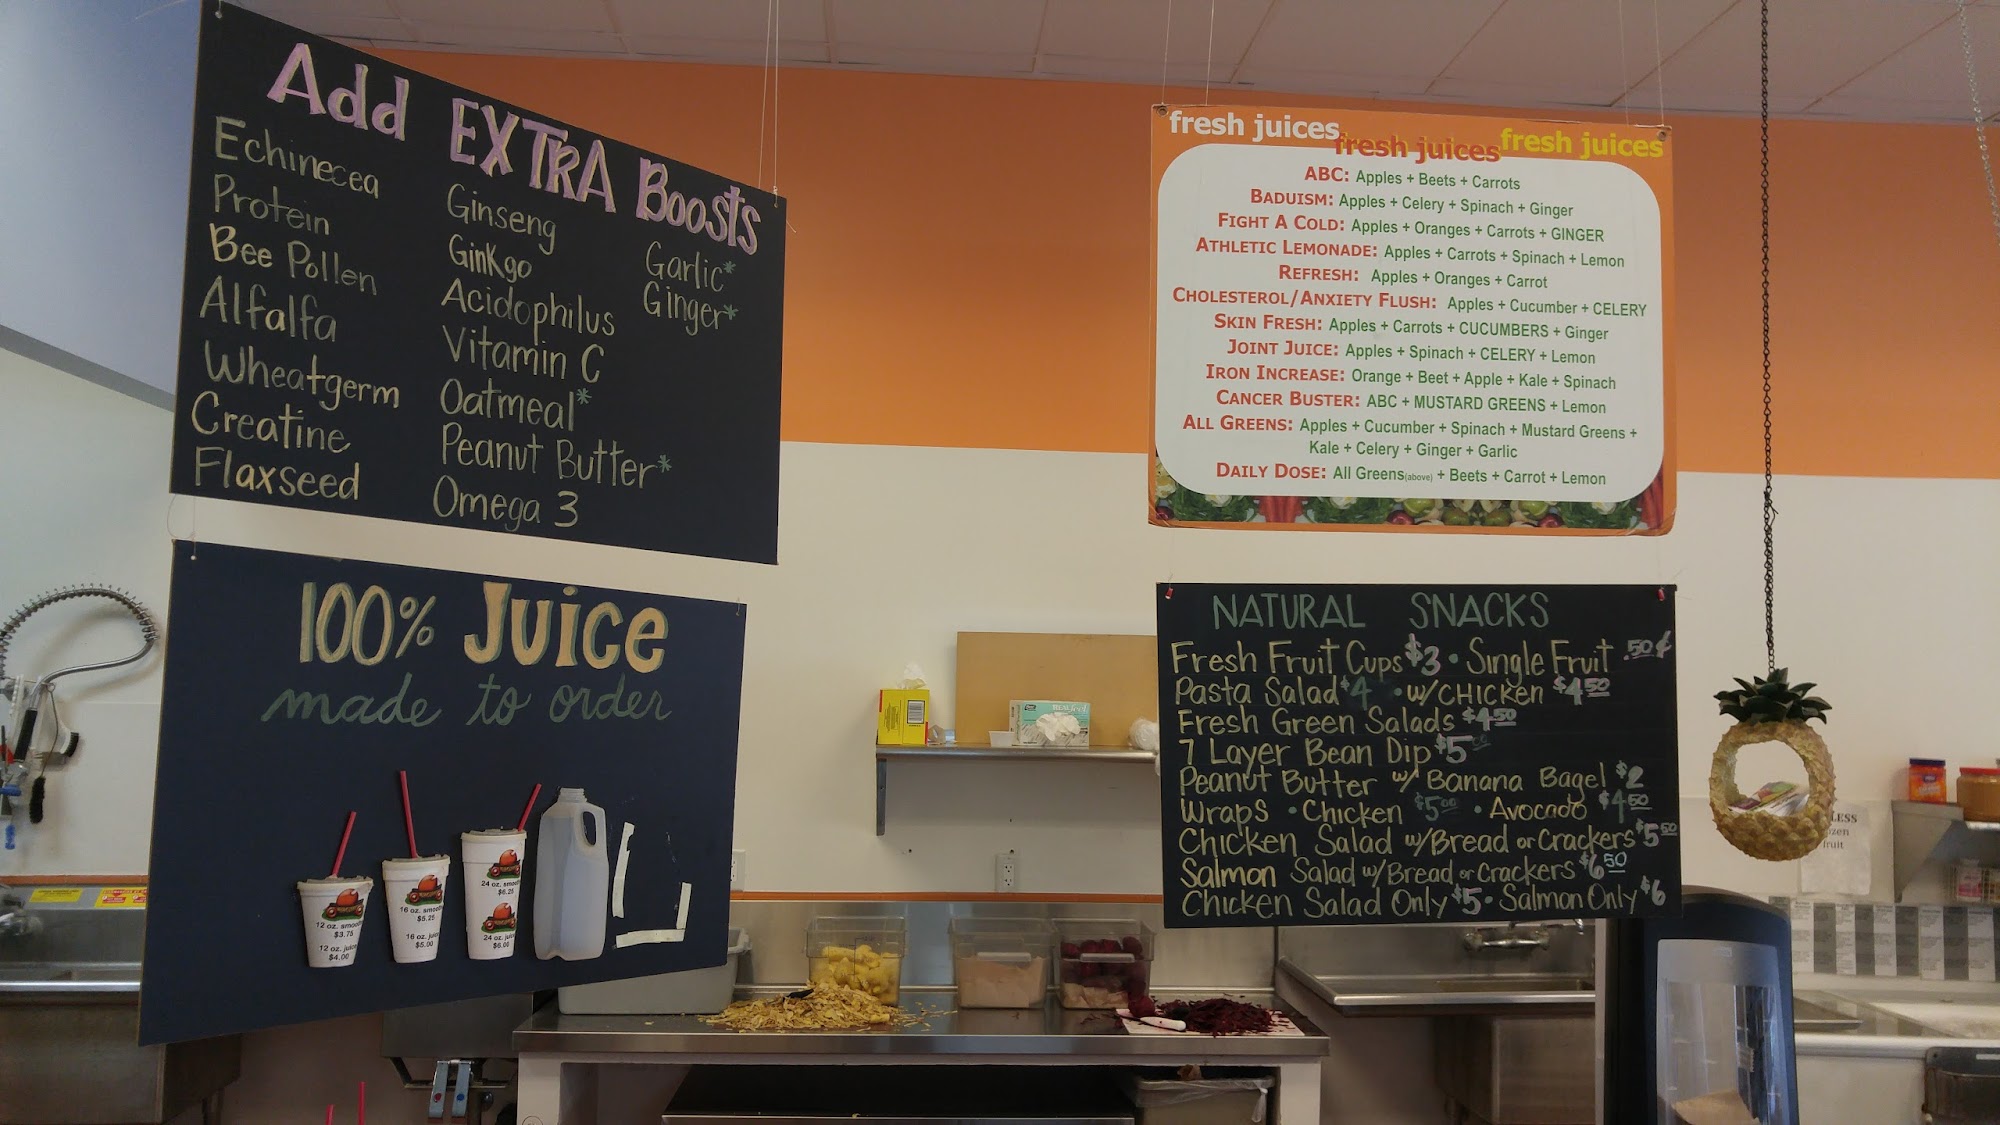 Add EXTRA Boosts
Echinecea
Protein
Bee Pollen
Alfalfa
Wheatgerm
Creatine
Flaxseed
Ginseng
GinKgo
Acidophilus
Vitamin C
Oatmeal*
Peanut Butter*
Omega 3
Garlic*
Ginger*
100% Juice
made to order
12 oz.
$3.75
12 oz. juice
$4.00
16 oz.
$5.25
16 oz. juice
$5.00
24 oz.
$6.25
24 oz. juice
$6.00
fresh juices fresh juices fresh juices
ABC: Apples + Beets + Carrots
BADUISM: Apples + Celery + Spinach + Ginger
FIGHT A COLD: Apples + Oranges + Carrots + GINGER
ATHLETIC LEMONADE: Apples + Carrots + Spinach + Lemon
REFRESH: Apples + Oranges + Carrot
CHOLESTEROL/ANXIETY FLUSH: Apples + Cucumber + CELERY
SKIN FRESH: Apples + Carrots + CUCUMBERS + Ginger
JOINT JUICE: Apples + Spinach + CELERY + Lemon
IRON INCREASE: Orange + Beet + Apple + Kale + Spinach
CANCER BUSTER: ABC + MUSTARD GREENS + Lemon
ALL GREENS: Apples + Cucumber + Spinach + Mustard Greens +
Kale + Celery + Ginger + Garlic
DAILY DOSE: All Greens(above) + Beets + Carrot + Lemon
NATURAL SNACKS
Fresh Fruit Cups $3 • Single Fruit .50¢
Pasta Salad $4 • w/CHICKEN $4.50
Fresh Green Salads $4.50
7 Layer Bean Dip $5.00
Peanut Butter w/ Banana Bagel $2
Wraps • Chicken $5.00 • Avocado $4.50
Chicken Salad w/Bread or Crackers $5.50
Salmon Salad w/Bread or Crackers $6.50
Chicken Salad Only $5 • Salmon Only $6